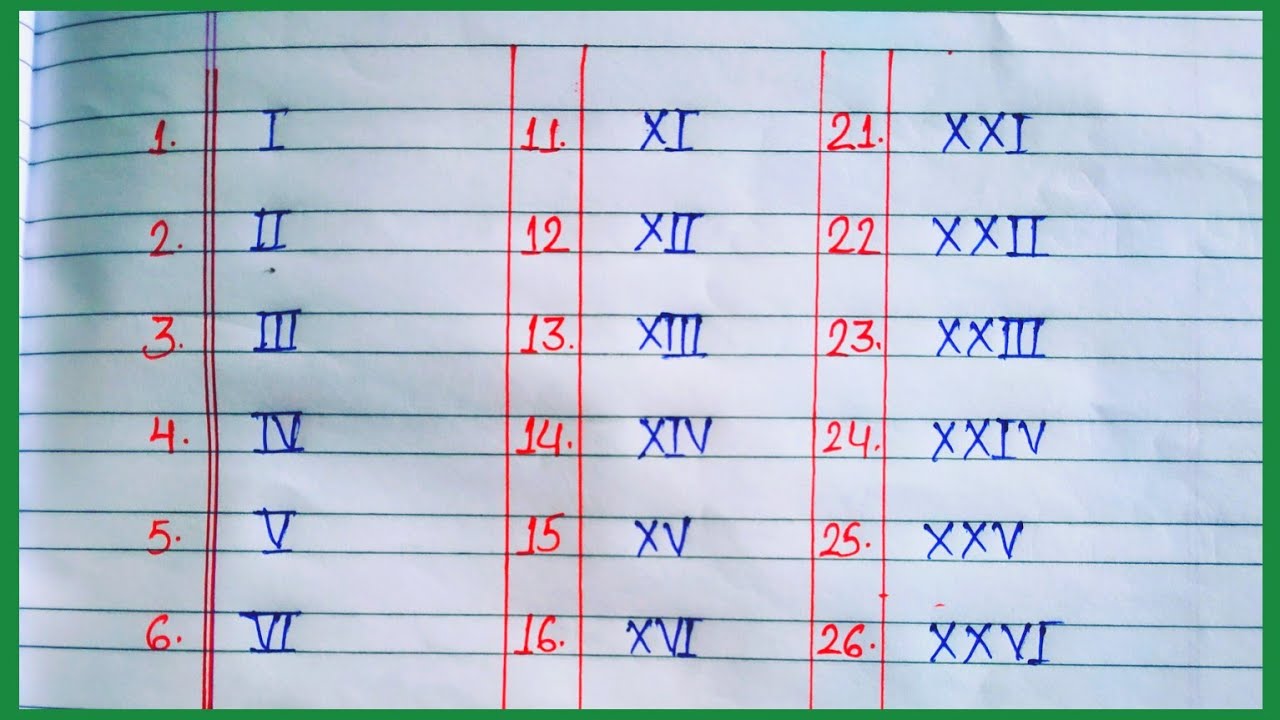 1. I 11. XI 21. XXI
2. II 12 XII 22 XXII
3. III 13. XIII 23. XXIII
4. IV 14. XIV 24. XXIV
5. V 15 XV 25. XXV
6. VI 16. XVI 26. XXVI